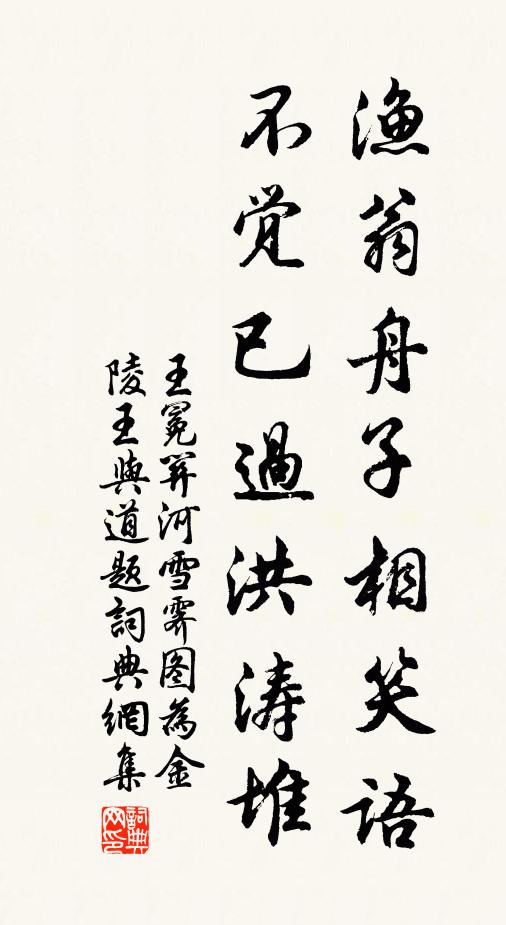 渔翁舟子相笑语
不觉已過洪涛堆
王冕関河雪霽图為金
陵王與道题詞典網集
詞典网印